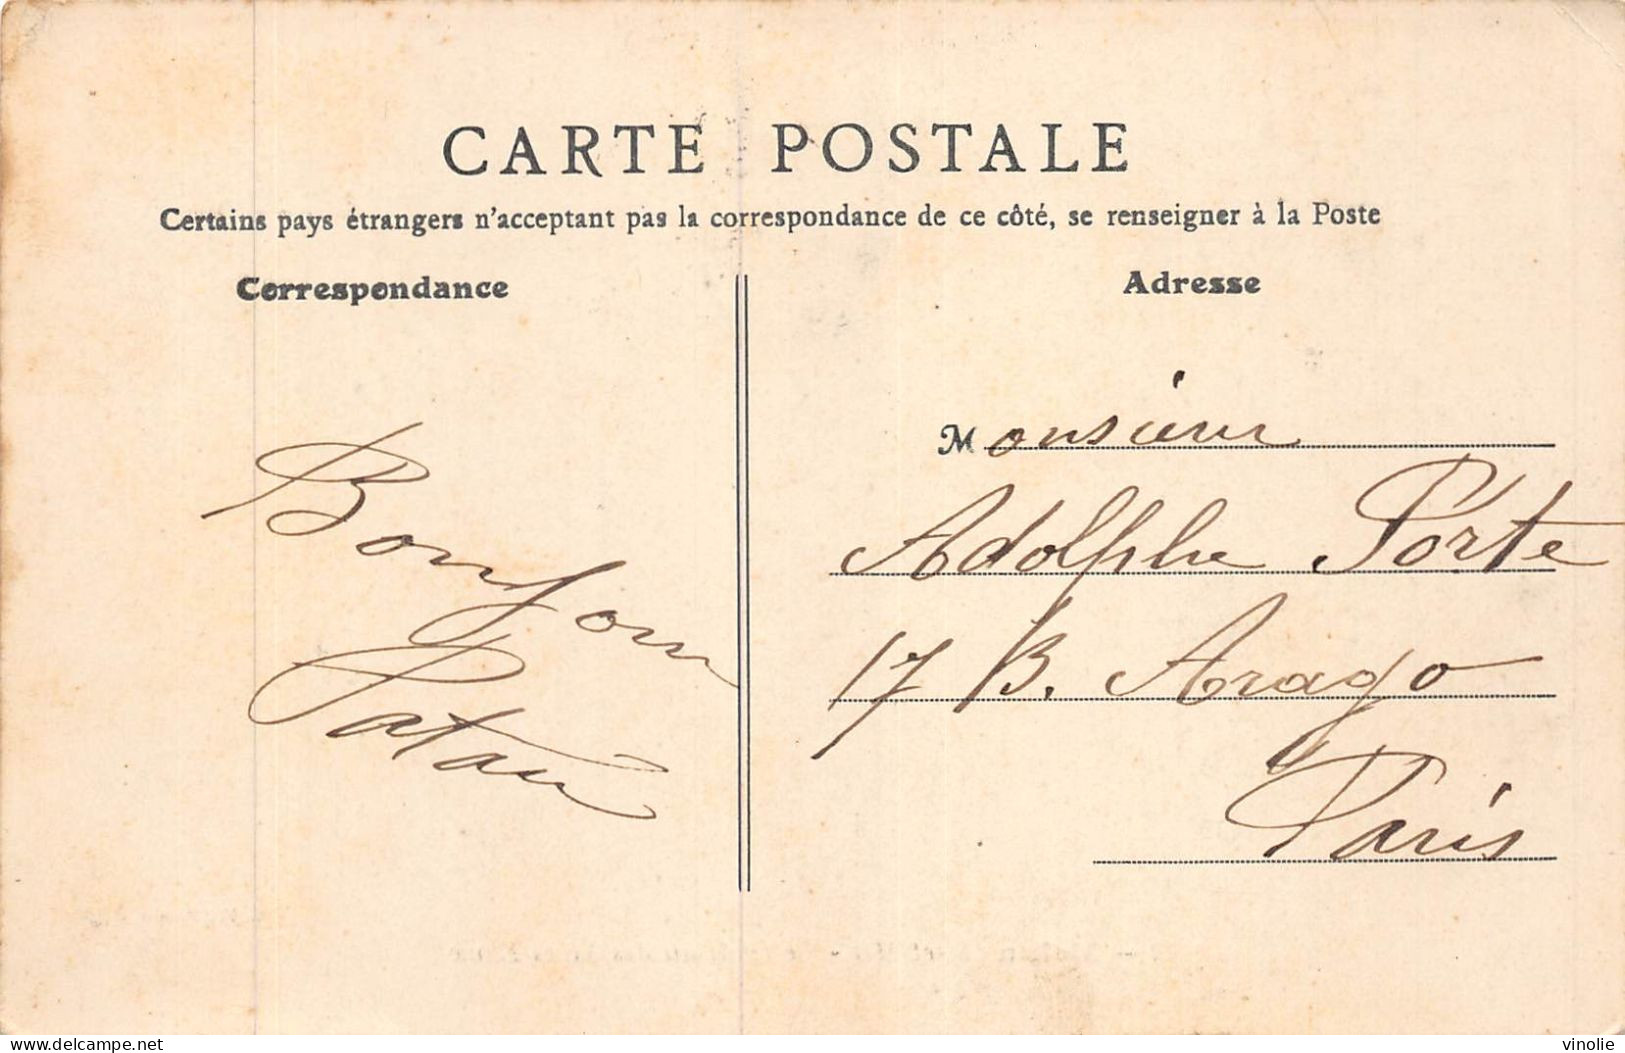 CARTE POSTALE
Certains pays étrangers n'acceptant pas la correspondance de ce côté, se renseigner à la Poste
Correspondance
Adresse
Bonjour
Monsieur
Adolphe Porte
17 B. Arago
Paris
delcampe.net
vinolie